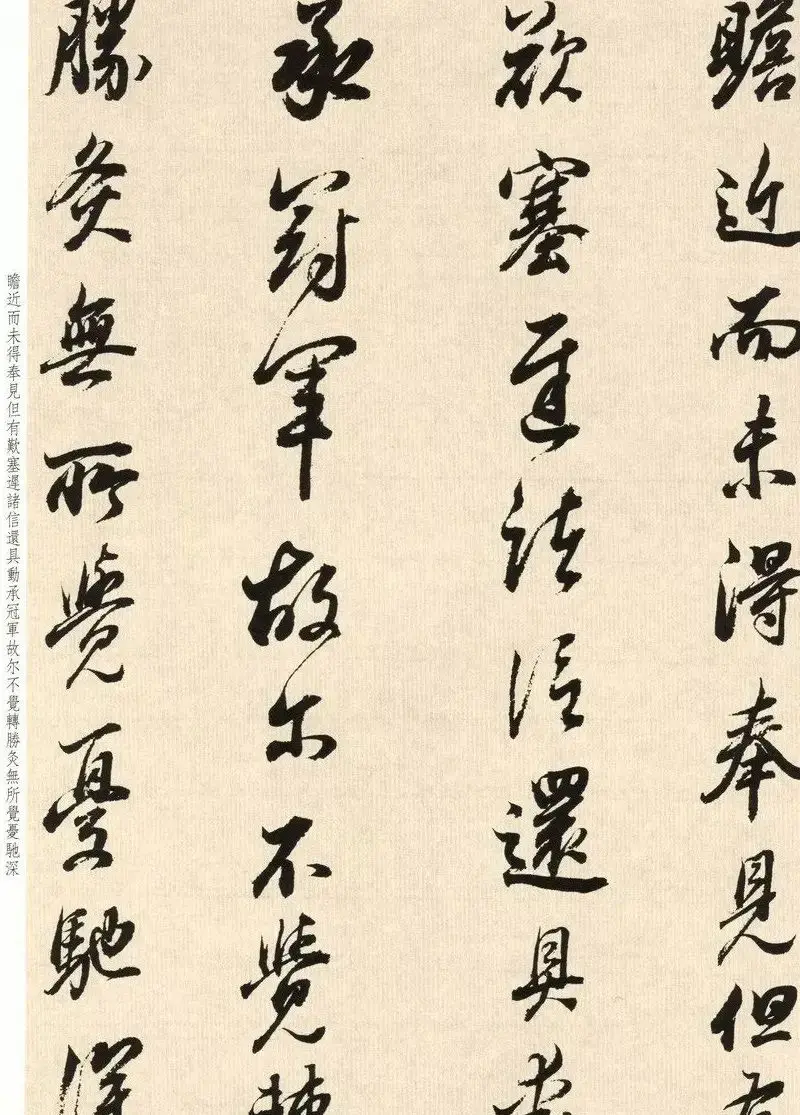 瞻近而未得奉見但有
歎塞遲諸信還具動
承冠軍故尔不覺轉
勝灸無所覺憂馳深
瞻近而未得奉見但有歎塞遲諸信還具動承冠軍故尔不覺轉勝灸無所覺憂馳深